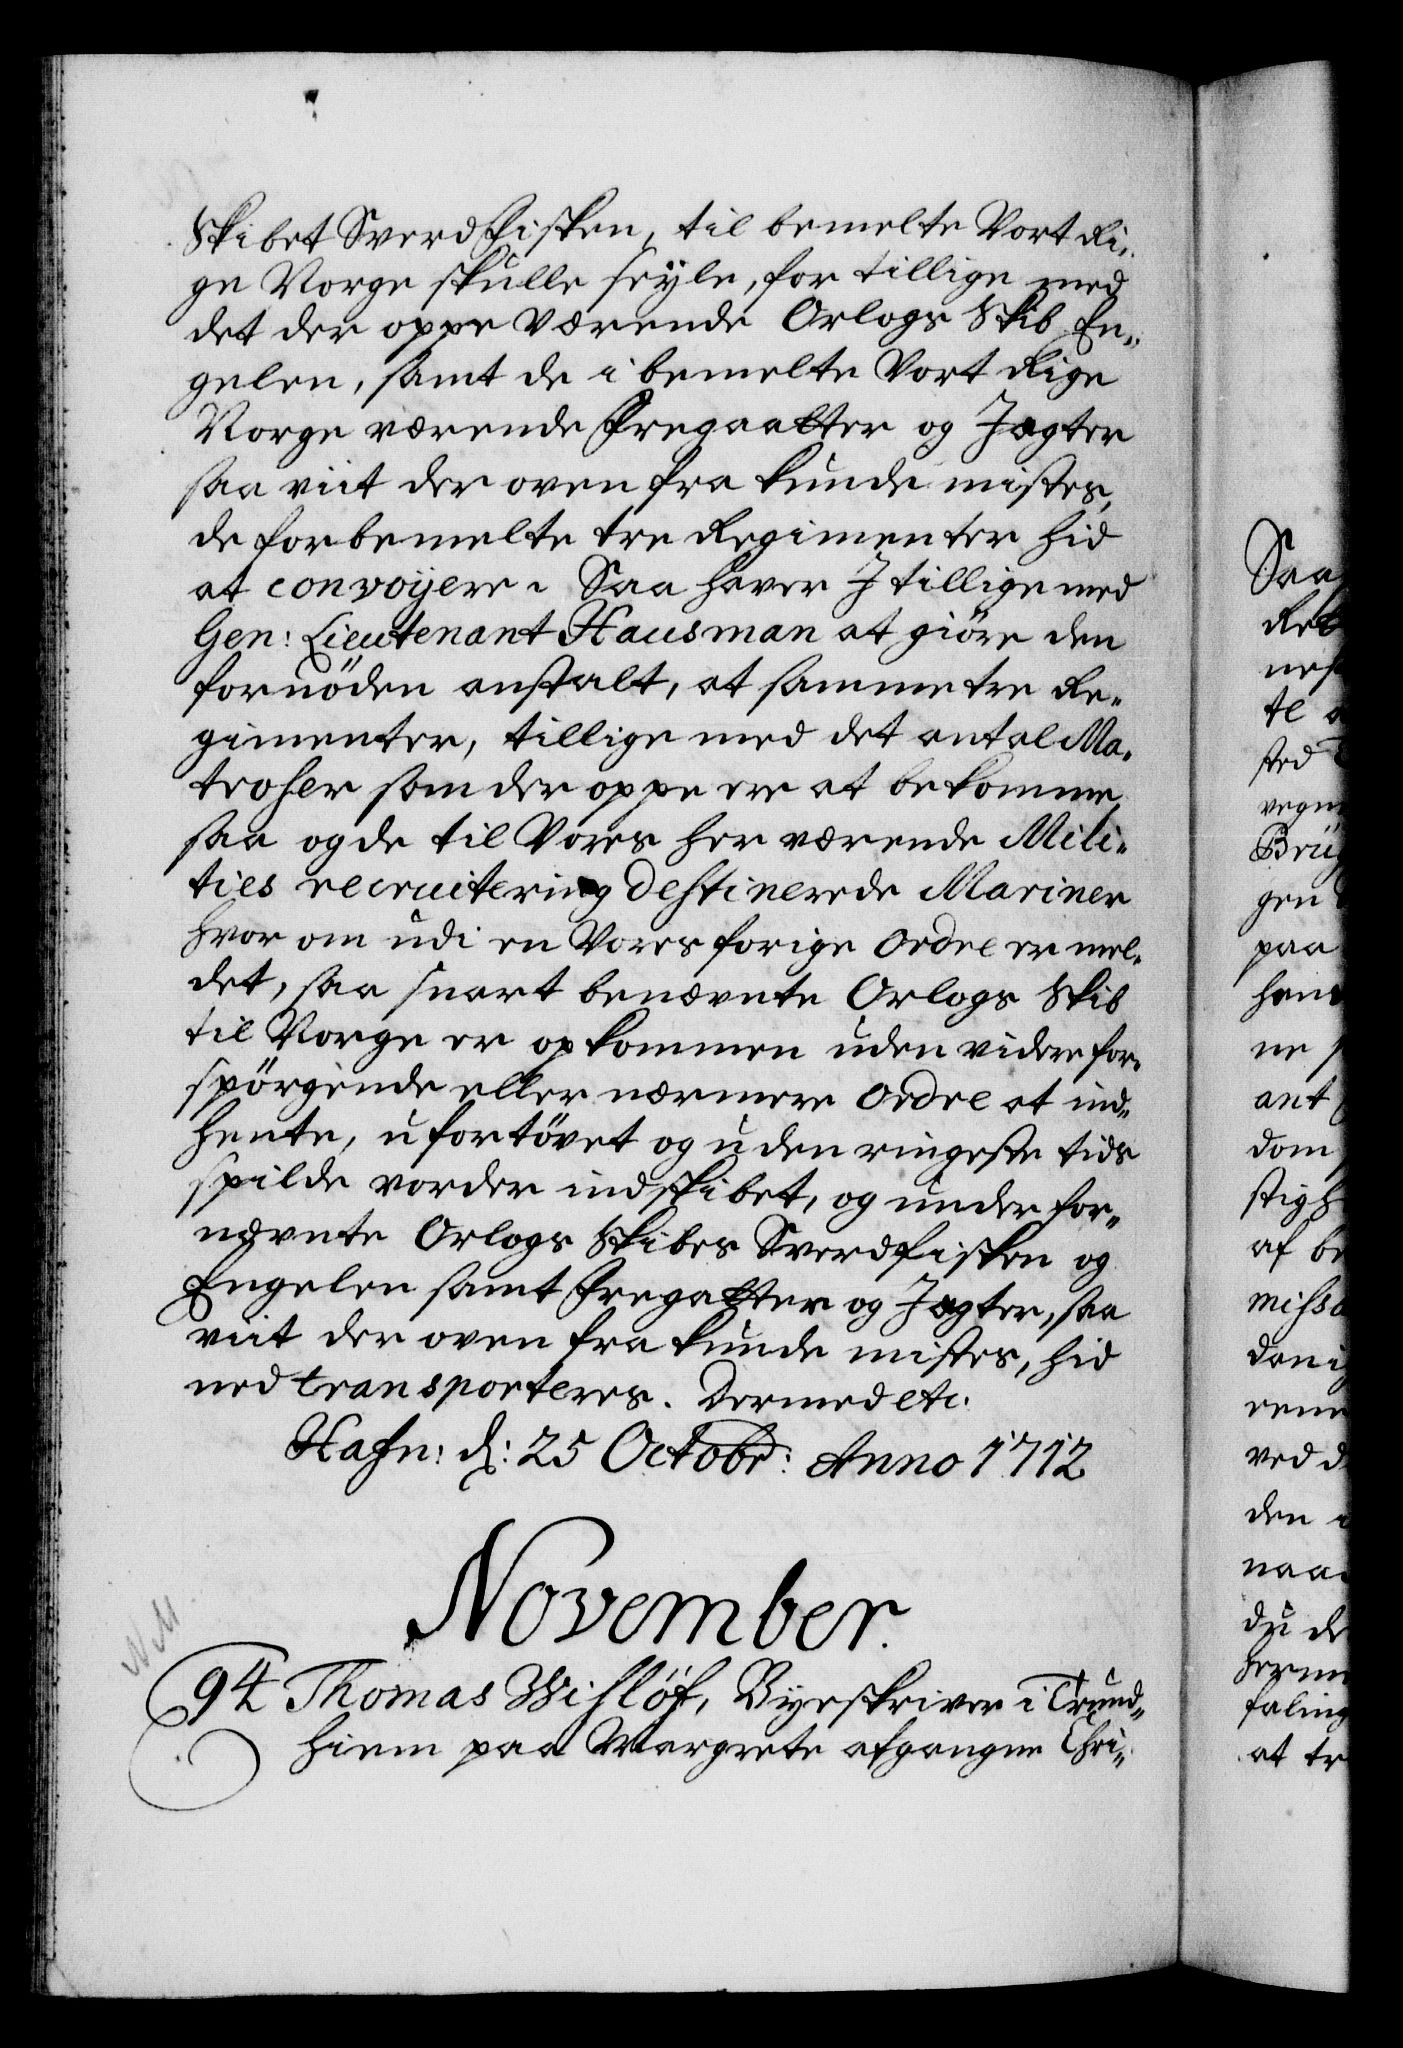 Skibet Sverdfisken, til bemelte Vort Ri-
ge Norge skulle seyle, for tillige med
det der oppe værende Orlogs Skib En-
gelen, samt de i bemelte Vort Rige
Norge værende Fregaatter og Jagter
saa viit der oven fra kunde mistes,
de forbemelte tre Regimenter hid
at convoijere. Saa haver I tillige med
Gen: Lieutenant Hausman at giöre den
fornöden anstalt, at samme tre Re-
gimenter, tillige med det antal Ma-
troser som der oppe ere at bekomme
saa og de til Vores her værende Mili-
ties recruitering destinerede Mariner
hvor om udi en Vores forige Ordre er mel-
det, saa snart benævnte Orlogs Skib
til Norge er opkommen uden videre for-
spörgende eller nærmere Ordre at ind-
hente, ufortövet og uden ringeste tids
spilde vorder indskibet, og under for-
nævnte Orlogs Skibes Sverdfisken og
Engelen samt Fregatter og Jagter, saa
viit der oven fra kunde mistes, hid
ned transporteres. Dermed etc.
Hafn: d: 25 Octobr: Anno 1712
November.
NM
94 Thomas Wislöf, Byeskriver i Trund-
hiem paa Margrete afgangne Chri-
Saa
nes
te
sted
vegne
Brüg
gen
paa
hans
ne
ant
dom
stigh
af be
missa
den
ved d
den
naa
du de
herm
faling
at tr